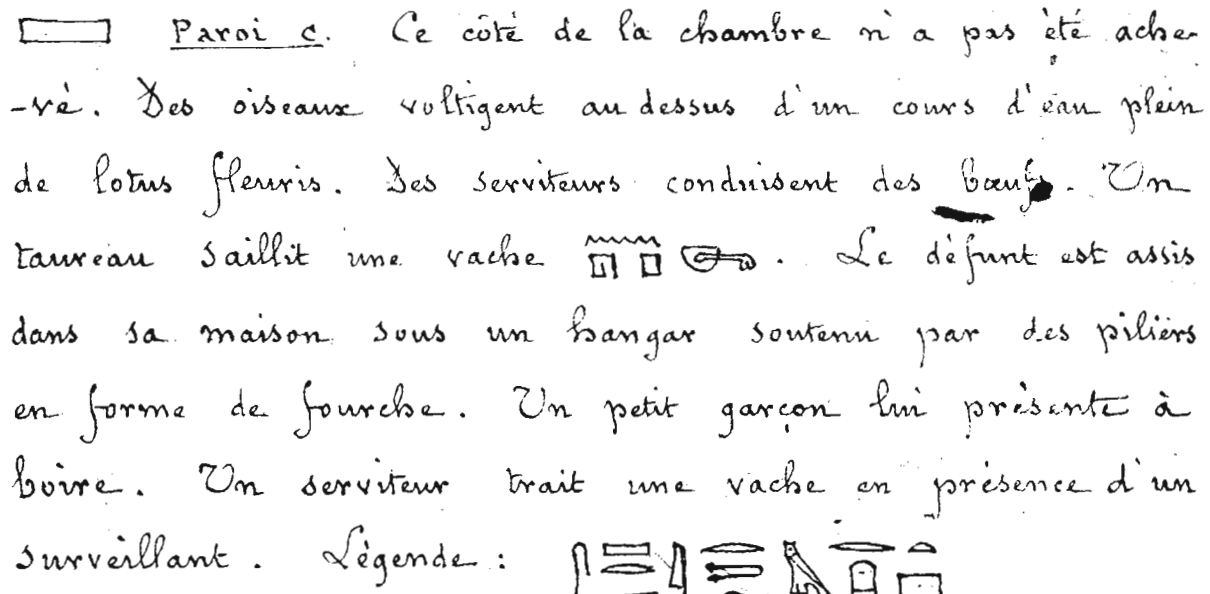 Paroi c. Ce côté de la chambre n'a pas été ache-
-vé. Des oiseaux voltigent au dessus d'un cours d'eau plein
de lotus fleuris. Des serviteurs conduisent des bœufs. Un
taureau saillit une vache. Le défunt est assis
dans sa maison sous un hangar soutenu par des piliers
en forme de fourche. Un petit garçon lui présente à
boire. Un serviteur trait une vache en présence d'un
surveillant. Légende :